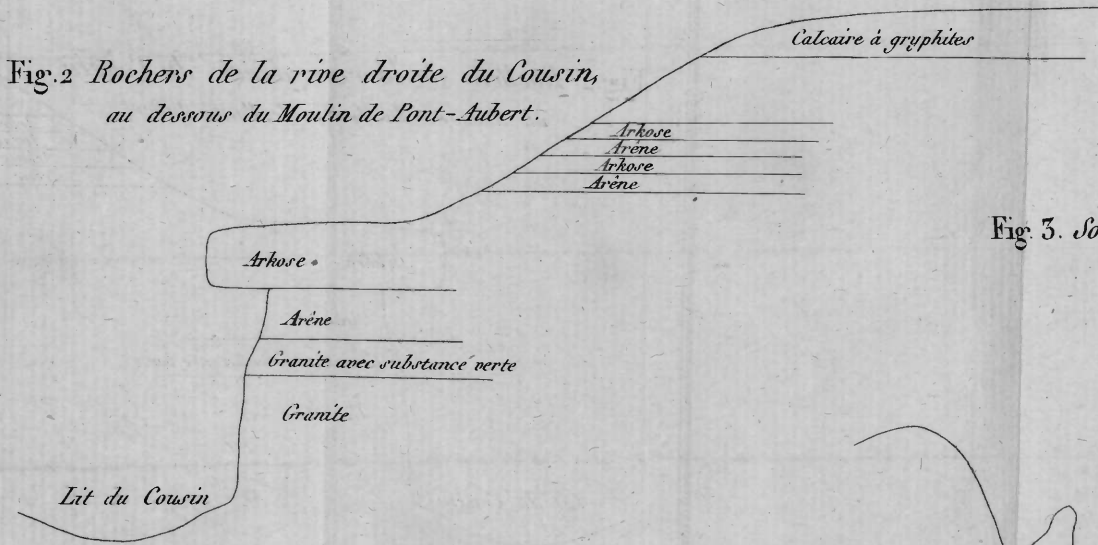 Fig. 2 Rochers de la rive droite du Cousin,
au dessous du Moulin de Pont-Aubert.
Calcaire à gryphites
Arkose
Arêne
Arkose
Arêne
Arkose
Arêne
Granite avec substance verte
Granite
Lit du Cousin
Fig. 3.